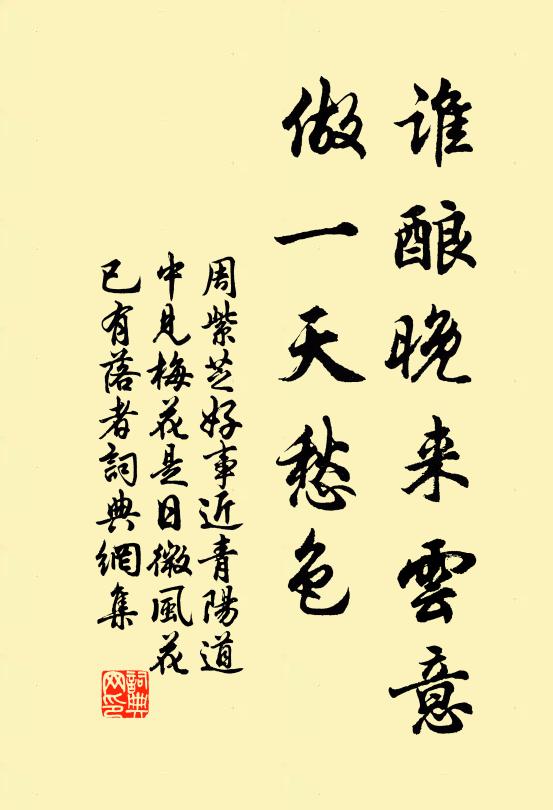 谁酿晚来雲意
做一天愁色
周紫芝好事近青陽道
中見梅花是日微風花
已有落者詞典網集
詞典网印